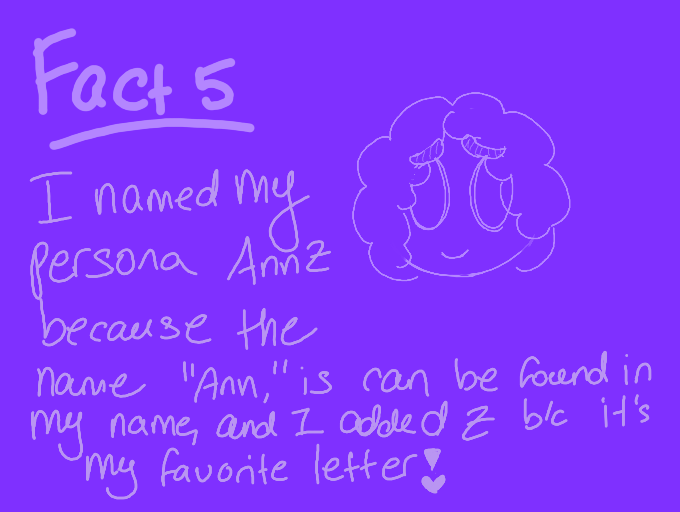 Fact 5
I named my
persona Annz
because the
name "Ann," is can be found in
my name, and I added Z b/c it's
my favorite letter!